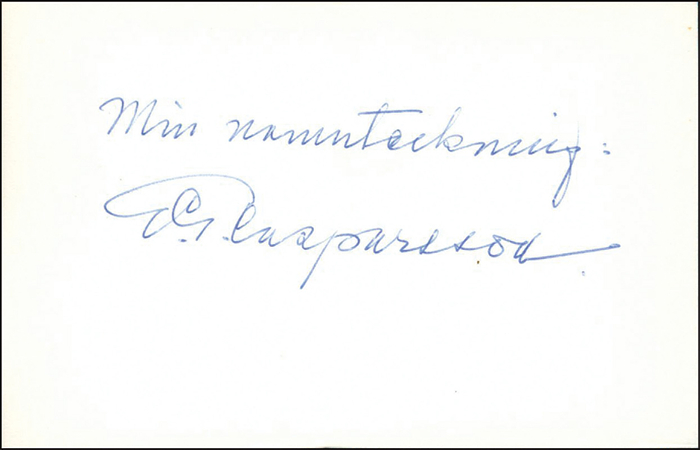 Min namnteckning:
Casparsson